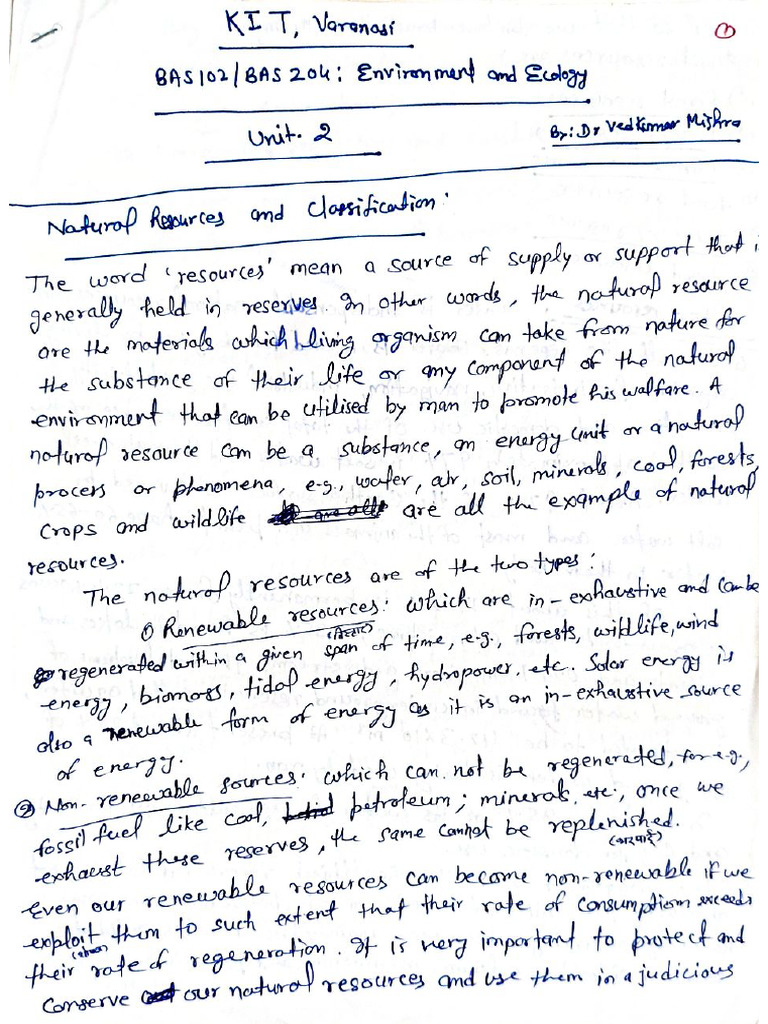 KIT, Varanasi
①
BAS102/BAS204: Environment and Ecology
Unit. 2
By: Dr Vedkumar Mishra
Natural Resources and Classification:
The word 'resources' mean a source of supply or support that i
generally held in reserves In other words, the natural resource
are the materials which living organism can take from nature for
the substance of their life or any component of the natural
environment that can be utilised by man to promote his walfare. A
natural resource can be a substance, an energy unit or a natural
process or phenomena, e.g., water, air, soil, minerals, coal, forests,
crops and wildlife are all the example of natural
resources.
The natural resources are of the two types:
① Renewable resources: which are in-exhaustive and can be
(विस्तार)
regenerated within a given span of time, e.g., forests, wildlife, wind
energy, biomass, tidal energy, hydropower, etc. Solar energy is
also a renewable form of energy as it is an in-exhaustive source
of energy.
② Non-renewable sources: which can not be regenerated, for e.g.,
fossil fuel like coal, petroleum, minerals, etc, once we
exhaust these reserves, the same cannot be replenished.
Even our renewable resources can become non-renewable if we
exploit them to such extent that their rate of consumption exceeds
their rate of regeneration. It is very important to protect and
conserve our natural resources and use them in a judicious